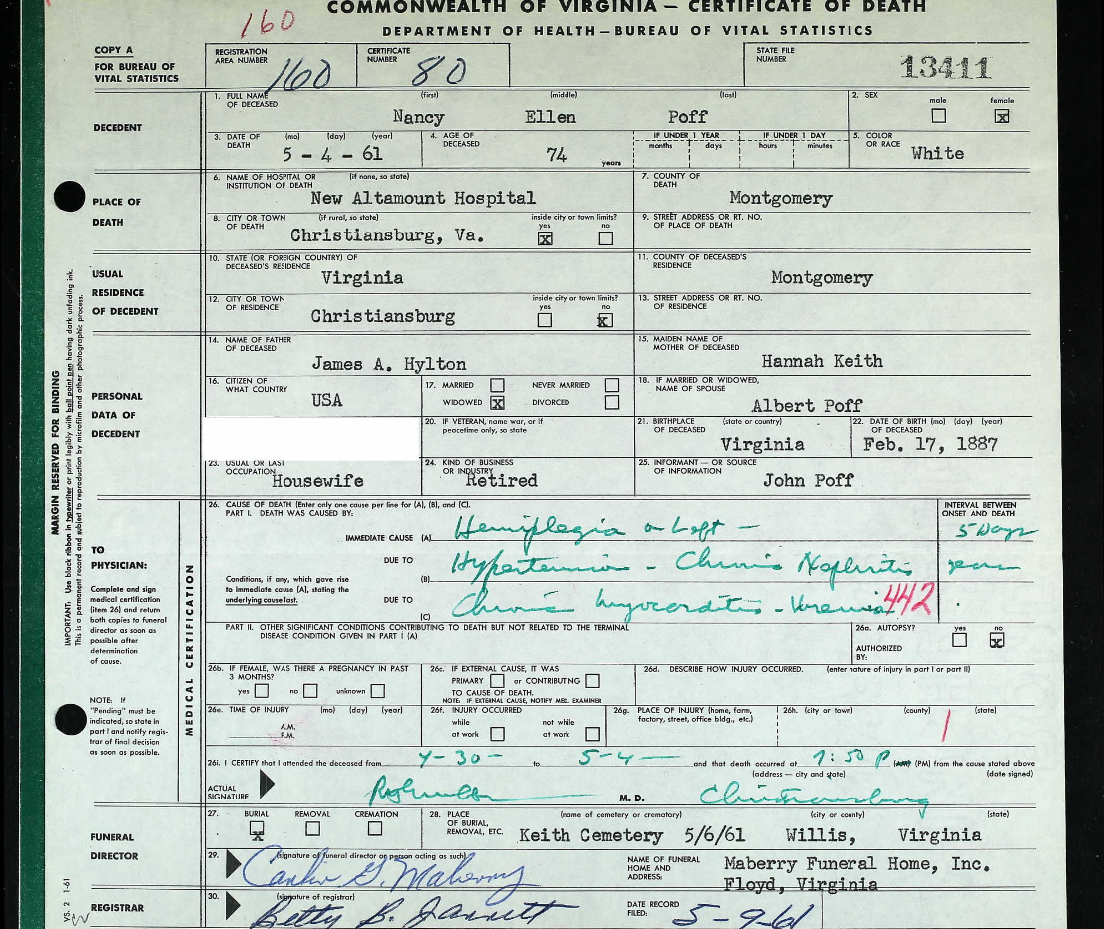 COMMONWEALTH OF VIRGINIA — CERTIFICATE OF DEATH
160
DEPARTMENT OF HEALTH — BUREAU OF VITAL STATISTICS
COPY A
FOR BUREAU OF
VITAL STATISTICS
REGISTRATION
AREA NUMBER
160
CERTIFICATE
NUMBER
80
STATE FILE
NUMBER
13411
DECEDENT
1. FULL NAME
OF DECEASED
(first) (middle) (last)
Nancy Ellen Poff
2. SEX
male female
X
3. DATE OF
DEATH
(mo) (day) (year)
5 - 4 - 61
4. AGE OF
DECEASED
74
years
IF UNDER 1 YEAR
months days
IF UNDER 1 DAY
hours minutes
5. COLOR
OR RACE
White
PLACE OF
DEATH
6. NAME OF HOSPITAL OR (if none, so state)
INSTITUTION OF DEATH
New Altamount Hospital
7. COUNTY OF
DEATH
Montgomery
8. CITY OR TOWN (if rural, so state)
OF DEATH
Christiansburg, Va.
inside city or town limits?
yes no
X
9. STREET ADDRESS OR RT. NO.
OF PLACE OF DEATH
USUAL
RESIDENCE
OF DECEDENT
10. STATE (OR FOREIGN COUNTRY) OF
DECEASED'S RESIDENCE
Virginia
11. COUNTY OF DECEASED'S
RESIDENCE
Montgomery
12. CITY OR TOWN
OF RESIDENCE
Christiansburg
inside city or town limits?
yes no
X
13. STREET ADDRESS OR RT. NO.
OF RESIDENCE
PERSONAL
DATA OF
DECEDENT
14. NAME OF FATHER
OF DECEASED
James A. Hylton
15. MAIDEN NAME OF
MOTHER OF DECEASED
Hannah Keith
16. CITIZEN OF
WHAT COUNTRY
USA
17. MARRIED NEVER MARRIED
WIDOWED X DIVORCED
18. IF MARRIED OR WIDOWED,
NAME OF SPOUSE
Albert Poff
20. IF VETERAN, name war, or if
peacetime only, so state
21. BIRTHPLACE (state or country)
OF DECEASED
Virginia
22. DATE OF BIRTH (mo) (day) (year)
OF DECEASED
Feb. 17, 1887
23. USUAL OR LAST
OCCUPATION
Housewife
24. KIND OF BUSINESS
OR INDUSTRY
Retired
25. INFORMANT — OR SOURCE
OF INFORMATION
John Poff
MARGIN RESERVED FOR BINDING
IMPORTANT: Use black ribbon in typewriter or print legibly with ball point pen having dark unfading ink.
This is a permanent record and subject to reproduction by microfilm and other photographic process.
TO
PHYSICIAN:
Complete and sign
medical certification
(item 26) and return
both copies to funeral
director as soon as
possible after
determination
of cause.
NOTE: If
"Pending" must be
indicated, so state in
part I and notify regis-
trar of final decision
as soon as possible.
MEDICAL CERTIFICATION
26. CAUSE OF DEATH (Enter only one cause per line for (A), (B), and (C).
PART I. DEATH WAS CAUSED BY:
INTERVAL BETWEEN
ONSET AND DEATH
IMMEDIATE CAUSE (A) Hemiplegia on Left — 5 Days
DUE TO
(B) Hypertension - Chronic Nephritis years
Conditions, if any, which gave rise
to immediate cause (A), stating the
underlying cause last.
DUE TO
(C) Chronic myocarditis - Uremia 442
PART II. OTHER SIGNIFICANT CONDITIONS CONTRIBUTING TO DEATH BUT NOT RELATED TO THE TERMINAL
DISEASE CONDITION GIVEN IN PART I (A)
26a. AUTOPSY? yes no
X
AUTHORIZED
BY:
26b. IF FEMALE, WAS THERE A PREGNANCY IN PAST
3 MONTHS?
yes no unknown
26c. IF EXTERNAL CAUSE, IT WAS
PRIMARY or CONTRIBUTNG
TO CAUSE OF DEATH.
NOTE: IF EXTERNAL CAUSE, NOTIFY MED. EXAMINER
26d. DESCRIBE HOW INJURY OCCURRED. (enter nature of injury in part I or part II)
26e. TIME OF INJURY (mo) (day) (year)
A.M.
P.M.
26f. INJURY OCCURRED
while not while
at work at work
26g. PLACE OF INJURY (home, farm,
factory, street, office bldg., etc.)
26h. (city or town) (county) (state)
26i. I CERTIFY that I attended the deceased from 4-30- to 5-4 — and that death occurred at 7:50 P (AM) (PM) from the cause stated above
(address — city and state) (date signed)
ACTUAL
SIGNATURE
M. D. Christiansburg
FUNERAL
DIRECTOR
27. BURIAL REMOVAL CREMATION
X
28. PLACE
OF BURIAL,
REMOVAL, ETC.
(name of cemetery or crematory) (city or county) (state)
Keith Cemetery 5/6/61 Willis, Virginia
29. (signature of funeral director or person acting as such)
NAME OF FUNERAL
HOME AND
ADDRESS:
Maberry Funeral Home, Inc.
Floyd, Virginia
REGISTRAR
30. (signature of registrar)
Betty B. Jannett
DATE RECORD
FILED:
5-9-61
VS. 2 1-61